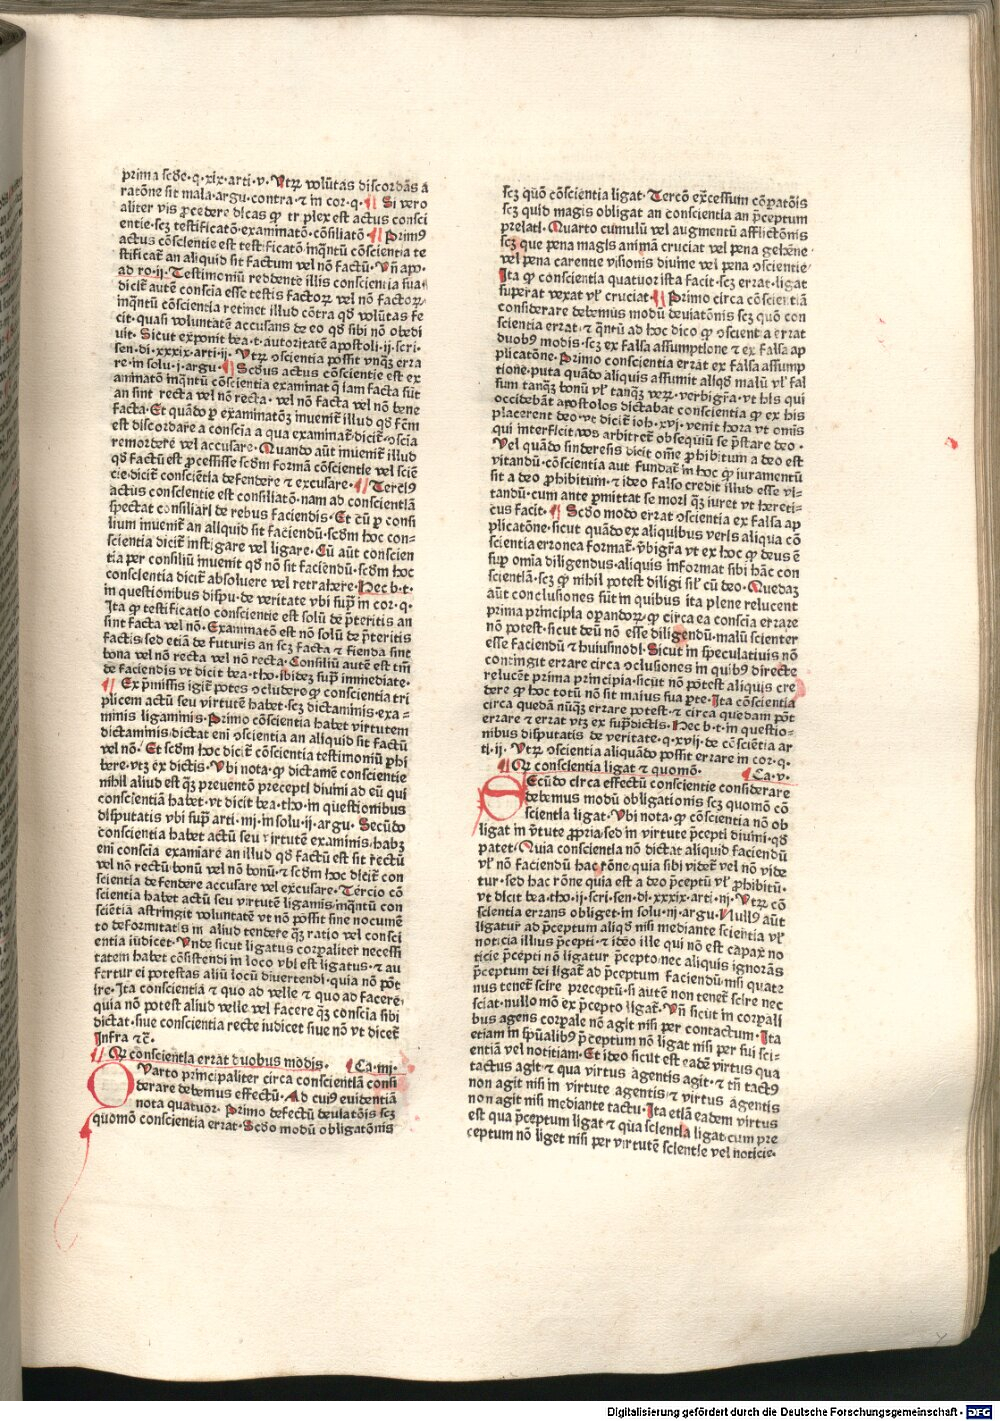 prima scd̄e·q·xix·arti·v·Vtꝝ volūtas discordās a
ratōne sit mala·argu·contra·⁊ in cor·q·¶ Si vero
aliter vis ꝓcedere dicas ꝙ triplex est actus consci
entie·scꝫ testificatō·examinatō·cōsiliatō ¶ Primꝰ
actus cōscientie est testificatō·inqͣntū cōscientia te
stificat̄ an aliquid sit factum vel nō factū·Vn̄ apo·
ad ro·ij·Testimoniū reddente illis conscientia sua
dicit̄ autē conscia esse testis factoꝝ vel nō factoꝝ·
inqͣntū cōscientia retinet illud cōtra qd̄ volūtas fe
cit·quasi voluntatē accusans de eo qd̄ sibi nō obedi
uit·Sicut exponit bea·t·autoritatē apostoli·ij·scri·
sen·di·xxxix·arti·ij·Vtꝝ ↄscientia possit vnqͣꝫ erra
re·in solu·j·argu·¶ Scd̄us actus cōscientie est ex
aminatō inqͣntū cōscientia examinat̄ qͣ iam facta sūt
an sint recta vel nō recta·vel nō facta vel nō bene
facta·Et quādo ꝑ examinatōꝫ inuenit̄ illud qd̄ fc̄m
est discordare a conscia a qua examinat̄·dicit̄·ↄscia
remordere vel accusare·Quando aūt inuenit̄ illud
qd̄ factū est ꝓcessisse scd̄m formā cōscientie vel sciē
cie·dicit̄ consciētia defendere ⁊ excusare·¶ Terciꝰ
actus conscientie est consiliatō·nam ad conscientiā
spectat consiliari de rebus faciendis·Et cū ꝑ consi
lium inuenit̄ an aliquid sit faciēdū·scd̄m hoc con-
scientia dicit̄ instigare vel ligare·Cū aūt conscien
tia per consiliū inuenit qd̄ nō sit faciēdū·scd̄m hoc
conscientia dicit̄ absoluere vel retrahere·Hec b·t·
in questionibus dispu·de veritate vbi supͣ in cor·q·
Ita ꝙ testificatio conscientie est solū de p̄teritis an
sint facta vel nō·Examinatō est nō solū de p̄teritis
factis sed etiā de futuris an scꝫ facta ⁊ fienda sint
bona vel nō recta vel nō recta·Consiliū autē est tm̄
de faciendis vt dicit bea·tho·ibideꝫ supͣ immediate·
¶ Ex p̄missis igit̄ potes ↄcludere ꝙ conscientia tri
plicem actū seu virtutē habet·scꝫ dictaminis·exa-
minis ligaminis·Primo cōscientia habet virtutem
dictaminis·dictat eni ↄscientia an aliquid sit factū
vel nō·Et scd̄m hoc dicit̄ cōscientia testimoniū phi
bere·vtꝫ ex dictis·Vbi nota·ꝙ dictamē conscientie
nihil aliud est qͣꝫ ꝑuentō precepti diuini ad eū qui
conscientiā habet·vt dicit bea·tho·in questionibus
disputatis vbi supͣ arti·iiij·in solu·ij·argu·Secūdo
conscientia habet actū seu virtutē examinis·habꝫ
eni conscia examiare an illud qd̄ factū est sit rectū
vel nō rectū·bonū vel nō bonū·⁊ scd̄m hoc dicit̄ con
scientia defendere accusare vel excusare·Tercio cō
scientia habet actū seu virtutē ligamis·inqͣntū con
sciētia astringit voluntatē vt nō possit sine nocumē
to deformitatis in aliud tendere qͣꝫ ratio vel consci
entia iudicet·Vnde sicut ligatus corꝑaliter necessi
tatem habet cōsistendi in loco vbi est ligatus·⁊ au
fertur ei potestas aliū locū diuertendi·quia nō pōt
ire·Ita conscientia ⁊ quo ad velle ⁊ quo ad facere·
quia nō potest aliud velle vel facere qͣꝫ conscia sibi
dictat·siue conscientia recte iudicet siue nō vt dicet̄
infra ⁊c̄·
¶ Qꝫ conscientia errat duobus modis· ¶ Ca·iiij·
QVarto principaliter circa conscientiā consi
derare debemus effectū·Ad cuiꝰ euidentiā
nota quatuor·Primo defectū deuiatōis scꝫ
quomō conscientia errat·Scd̄o modū obligatōnis
scꝫ quō cōscientia ligat·Tercō excessum cōparatōis
scꝫ quid magis obligat an conscientia an p̄ceptum
prelati·Quarto cumulū vel augmentū afflictōnis
scꝫ que pena magis animā cruciat vel pena gehēne·
vel pena carentie visionis diuine vel pena ↄscientie
Ita ꝙ conscientia quatuor ista facit·scꝫ errat·ligat
superat vexat vl̄ cruciat·¶ Primo circa cōscientiā
considerare debemus modū deuiatōnis scꝫ quō con
scientia errat·⁊ qͣntū ad hoc dico ꝙ ↄscientia errat
duobꝰ modis·scꝫ ex falsa assumptione ⁊ ex falsa ap
plicatōne·Primo conscientia errat ex falsa assump
tione·puta quādo aliquis assumit aliqd̄ malū vl̄ fal
sum tanqͣꝫ bonū vl̄ tanqͣꝫ veꝝ·verbigr̄a·vt his qui
occidebāt apostolos dictabat conscientia ꝙ ex his
placerent deo·vt dicit̄ ioh·xvj·venit hora vt omīs
qui interficit vos arbitret̄ obsequiū se p̄stare deo·
Vel quādo sinderesis dicit om̄e ꝓhibitum a deo est
vitandū·cōscientia aut̄ fundat̄ in hoc ꝙ iuramentū
sit a deo ꝓhibitum·⁊ ideo falso credit illud esse vi-
tandū·cum ante ꝑmittat se mori qͣꝫ iuret vt hereti-
cus facit·¶ Scd̄o modo errat ↄscientia ex falsa ap
plicatōne·sicut quādo ex aliquibus veris aliqua cō
scientia erronea format̄·v̄bigr̄a vt ex hoc ꝙ deus ē
suꝑ om̄ia diligendus·aliquis informat sibi hāc con
scientiā·scꝫ ꝙ nihil potest diligi sil̄ cū deo·Quedaꝫ
aūt conclusiones sūt in quibus ita plene relucent
prima principia oꝑandoꝝ ꝙ circa ea conscia errare
nō potest·sicut deū nō esse diligendū·malū scienter
esse faciendū ⁊ huiusmodi·Sicut in speculatiuis nō
contingit errare circa ↄclusiones in quibꝰ directe
relucēt prima principia·sicut nō potest aliquis cre
dere ꝙ hoc totū nō sit maius sua ꝑte·Ita cōscientia
circa quedā nūqͣꝫ errare potest·⁊ circa quedam pōt
errare ⁊ errat vtꝫ ex supͣdictis·Hec b·t·in questio-
nibus disputatis de veritate·q·xvij·de cōscientia ar
ti·ij·Vtꝝ ↄscientia aliquādo possit errare in cor·q·
¶ Qꝫ conscientia ligat ⁊ quomō· ¶ Ca·v·
SEcūdo circa effectū conscientie considerare
debemus modū obligationis scꝫ quomō cō
scientia ligat·Vbi nota·ꝙ cōscientia nō ob
ligat in v̄tute ꝓpria·sed in virtute p̄cepti diuini·qd̄
patet·Quia conscientia nō dictat aliquid faciendū
vl̄ nō faciendū hac rōne quia sibi videt̄ vel nō vide
tur·sed hac rōne quia est a deo p̄ceptū vl̄ ꝓhibitū·
vt dicit bea·tho·ij·scri·sen·di·xxxix·arti·iij·Vtꝝ cō
scientia errans obliget·in solu·iij·argu·Nullꝰ aūt
ligatur ad p̄ceptum aliqd̄ nisi mediante scientia vl̄
noticia illius p̄cepti·⁊ ideo ille qui nō est capax no
ticie p̄cepti nō ligatur p̄cepto·nec aliquis ignorās
p̄ceptum dei ligat̄ ad p̄ceptum faciendū·nisi quatꝫ
nus tenet̄ scire preceptū·si autē non tenet̄ scire nec
sciat·nullo mō ex p̄cepto ligat̄·Vn̄ sicut in corꝑali
bus agens corꝑale nō agit nisi per contactum·Ita
etiam in spūalibꝰ p̄ceptum nō ligat nisi per sui sci-
entiā vel notitiam·Et ideo sicut est eadē virtus qua
tactus agit ⁊ qua virtus agentis agit·⁊ tn̄ tactꝰ
non agit nisi in virtute agentis·⁊ virtus agentis
non agit nisi mediante tactu·Ita etiā eadem virtus
est qua p̄ceptum ligat ⁊ qua scientia ligat·cum pre
ceptum nō liget nisi per virtutē scientie vel noticie·
Digitalisierung gefördert durch die Deutsche Forschungsgemeinschaft - DFG